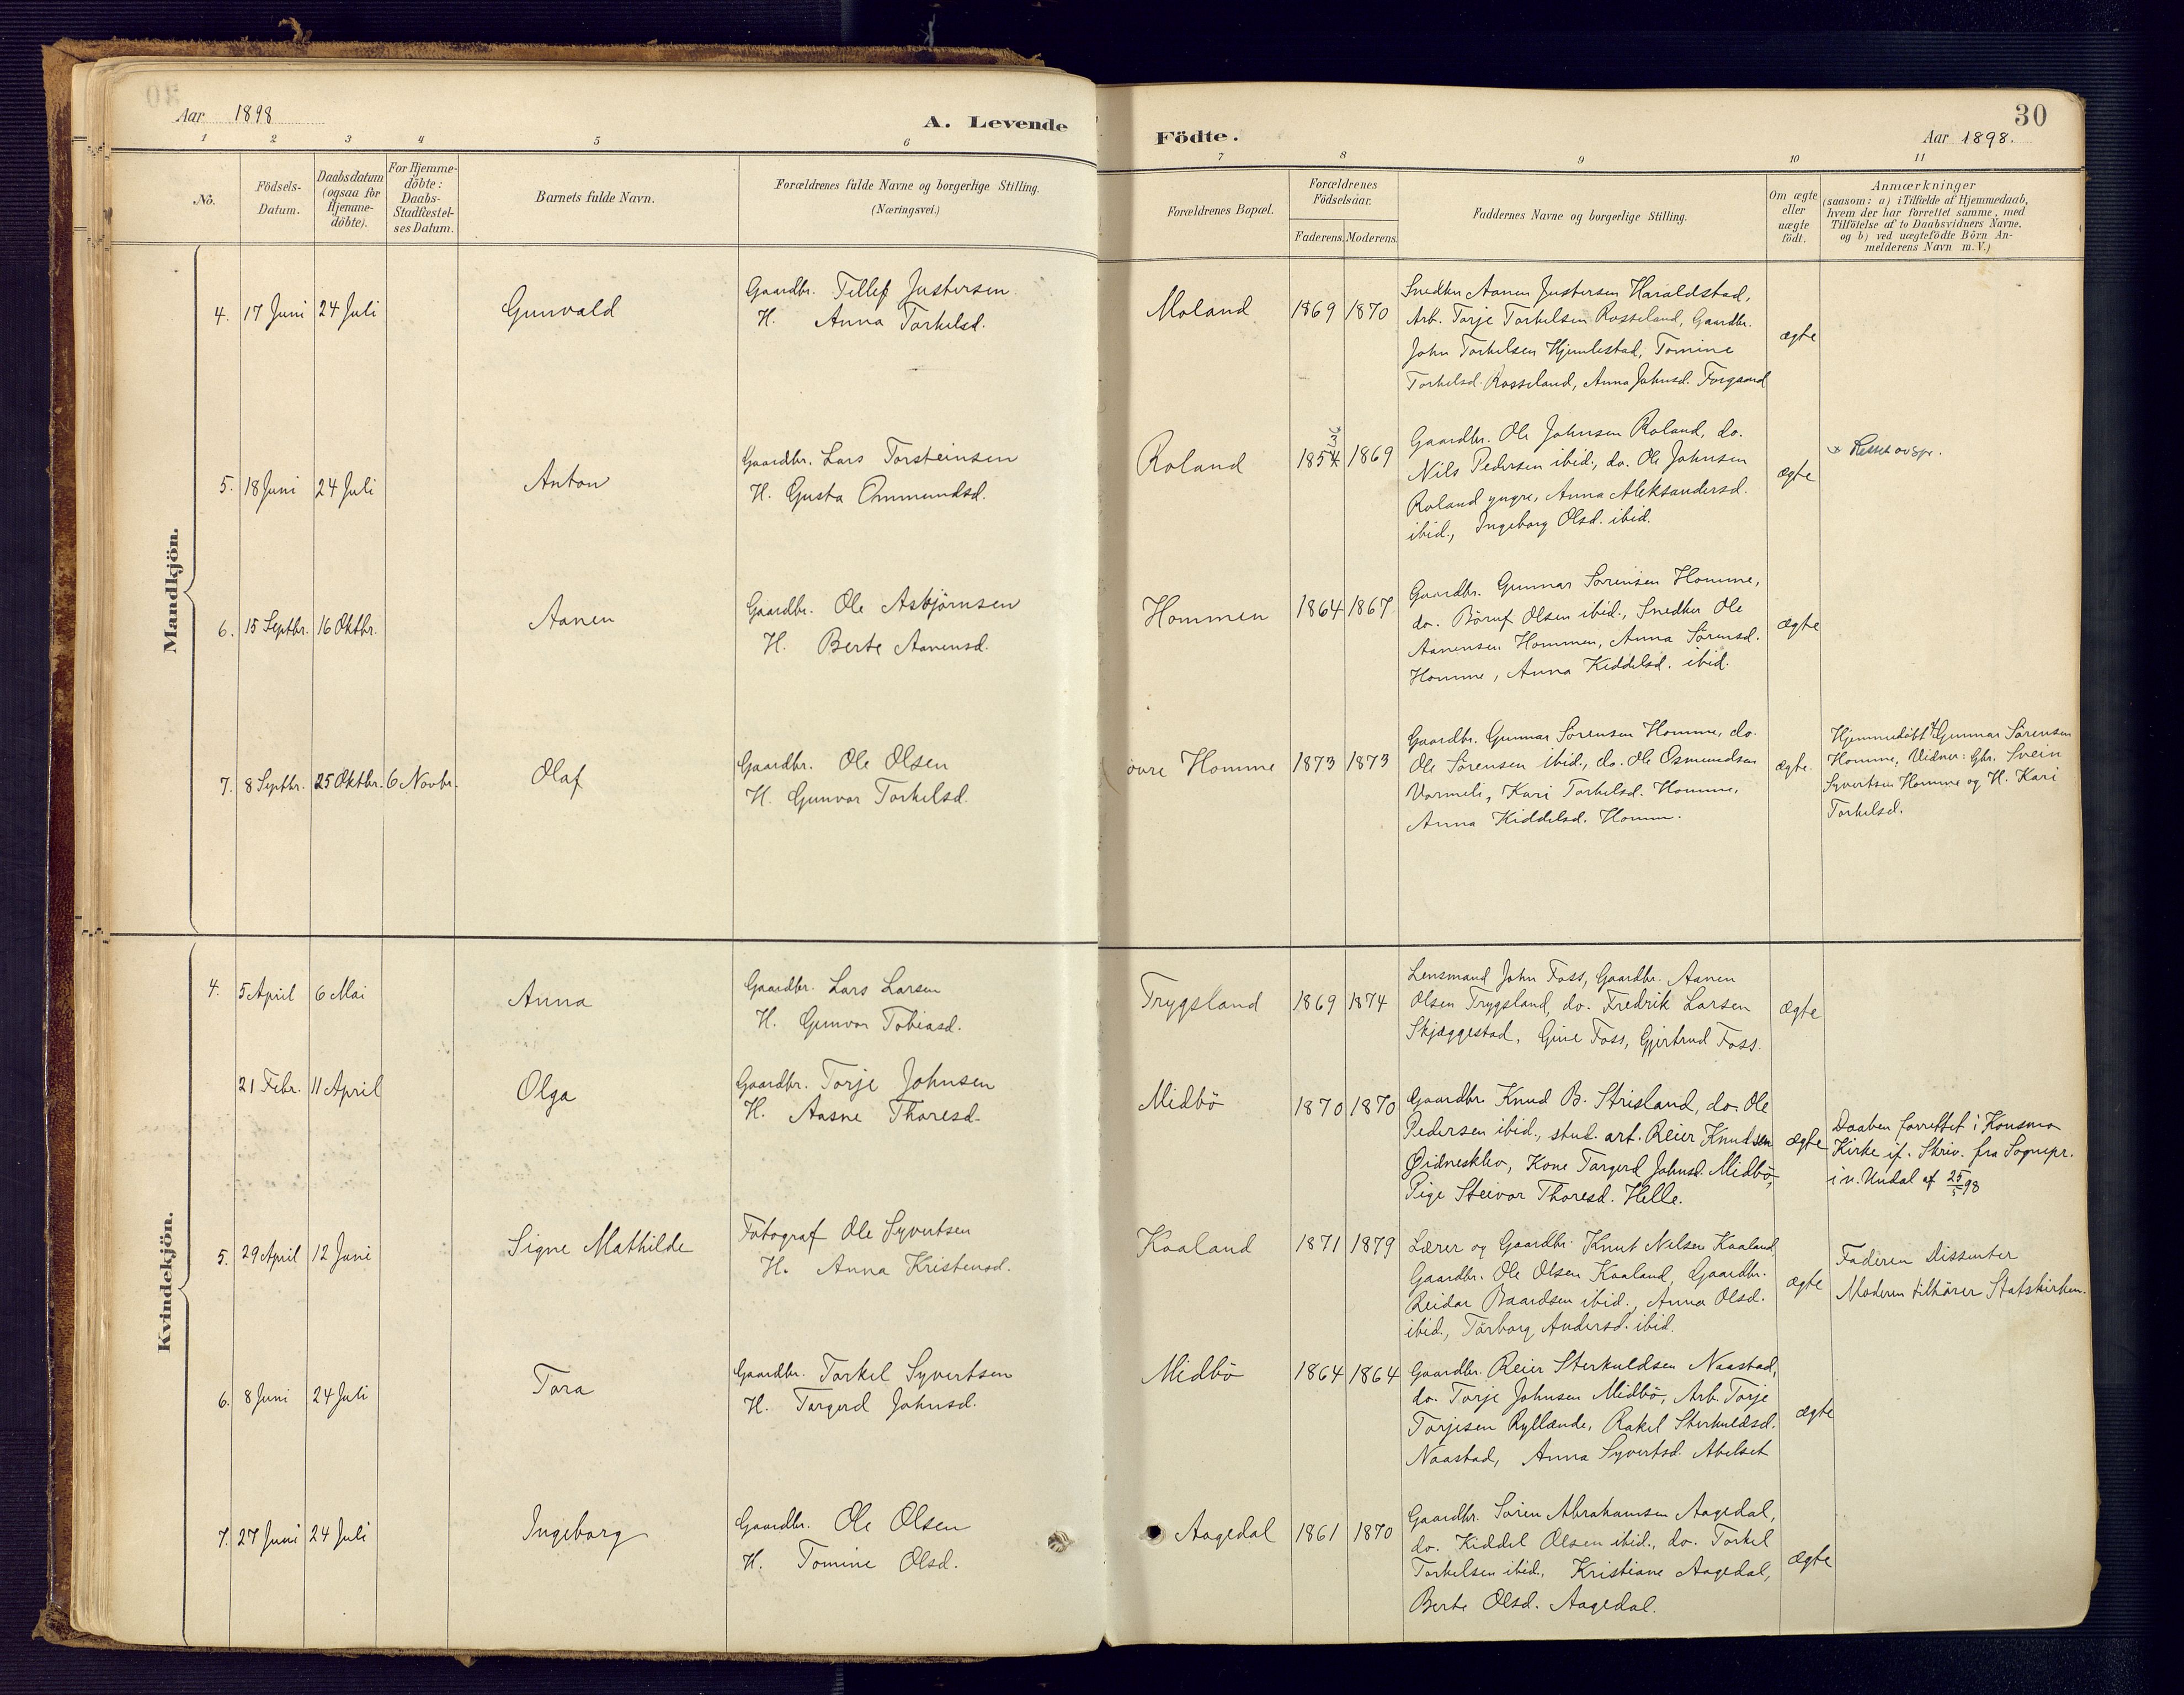 30
Aar 1898
A. Levende
Födte.
Aar 1898.
1 2 3 4 5 6 7 8 9 10 11
No.
Födsels-
Datum.
Daabsdatum
(ogsaa for
Hjemme-
döbte).
For Hjemme-
döbte:
Daabs-
Stadfæstel-
ses Datum.
Barnets fulde Navn.
Forældrenes fulde Navne og borgerlige Stilling.
(Næringsvei.)
Forældrenes Bopæl.
Forældrenes
Födselsaar.
Faderens. Moderens.
Faddernes Navne og borgerlige Stilling.
Om ægte
eller
uægte
födt.
Anmærkninger
(saasom: a) i Tilfælde af Hjemmedaab,
hvem der har forrettet samme, med
Tilföielse af to Daabsvidners Navne,
og b) ved uægtefödte Börn An-
melderens Navn m.V.)
Mandkjön.
4. 17 Juni 24 Juli
Gunvald
Gaardbr. Tellef Justersen
H. Anna Torkelsd.
Moland 1869 1870
Snedker Aanen Justersen Haraldstad,
Arb. Torje Torkelsen Rosseland, Gaardbr.
John Torkelsen Hjemlestad, Tomine
Torkelsd. Rosseland, Anna Johnsd. Forgaard
ægte
5. 18 Juni 24 Juli
Anton
Gaardbr. Lars Torsteinsen
H. Gusta Ommundsd.
Roland 1854 1869
Gaardbr. Ole Johnsen Roland, do.
Nils Pedersen ibid., do. Ole Johnsen
Roland yngre, Anna Aleksandersd.
ibid., Ingeborg Olsd. ibid.
ægte
6. 15 Septbr. 16 Oktbr.
Aanen
Gaardbr. Ole Asbjörnsen
H. Berte Aanensd.
Hommen 1864 1867
Gaardbr. Gunnar Sörensen Homme,
do. Böruf Olsen ibid., Snedker Ole
Aanensen Hommen, Anna Sörensd.
Homme, Anna Kiddelsd. ibid.
ægte
7. 8 Septbr. 25 Oktbr. 6 Novbr.
Olaf
Gaardbr. Ole Olsen
H. Gunvor Torkelsd.
övre Homme 1873 1873
Gaardbr. Gunnar Sörensen Homme, do.
Ole Sörensen ibid., do. Ole Osmundsen
Vormeli, Kari Torkelsd. Homme,
Anna Kiddelsd. Homme.
ægte.
Hjemmedöbt af Gunnar Sörensen
Homme, Vidner: Gbr. Svein
Syvertsen Homme og H. Kari
Torkelsd.
Kvindekjön.
4. 5 April 6 Mai
Anna
Gaardbr. Lars Larsen
H. Gunvor Tobiasd.
Trygsland 1869 1874
Lensmand John Foss, Gaardbr. Aanen
Olsen Trygsland, do. Fredrik Larsen
Skjæggestad, Gine Foss, Gjertrud Foss.
ægte
21 Febr. 11 April
Olga
Gaardbr. Torje Johnsen
H. Aasne Thoresd.
Midbö 1870 1870
Gaardbr Knud B. Strisland, do. Ole
Pedersen ibid., stud. art. Reier Knudsen
Øidneskliv, Kone Targerd Johnsd. Midbö,
Pige Steivor Thoresd. Helle.
ægte
Daaben forrettet i Konsmo
Kirke if. Skriv. fra Sognepr.
i n. Undal af 25/5 98
5. 29 April 12 Juni
Signe Mathilde
Fotograf Ole Syvertsen
H. Anna Kristensd.
Kaaland 1871 1879
Lærer og Gaardbr. Knut Nilsen Kaaland
Gaardbr. Ole Olsen Kaaland, Gaardbr.
Reidar Baardsen ibid., Anna Olsd.
ibid., Tarborg Andersd. ibid.
ægte
Faderen Dissenter
Moderen tilhörer Statskirken.
6. 8 Juni 24 Juli
Tora
Gaardbr. Torkel Syvertsen
H. Targerd Johnsd.
Midbö 1864 1864
Gaardbr. Reier Sterkuldsen Naastad,
do. Torje Johnsen Midbö, Arb. Torje
Torjesen Ryllande, Rakel Sterkuldsd.
Naastad, Anna Syvertsd. Abelset
ægte
7. 27 Juni 24 Juli
Ingeborg
Gaardbr. Ole Olsen
H. Tomine Olsd.
Aagedal 1861 1870
Gaardbr. Sören Abrahamsen Aagedal,
do. Kiddel Olsen ibid., do. Torkel
Torkelsen ibid., Kristiane Aagedal,
Berte Olsd. Aagedal.
ægte